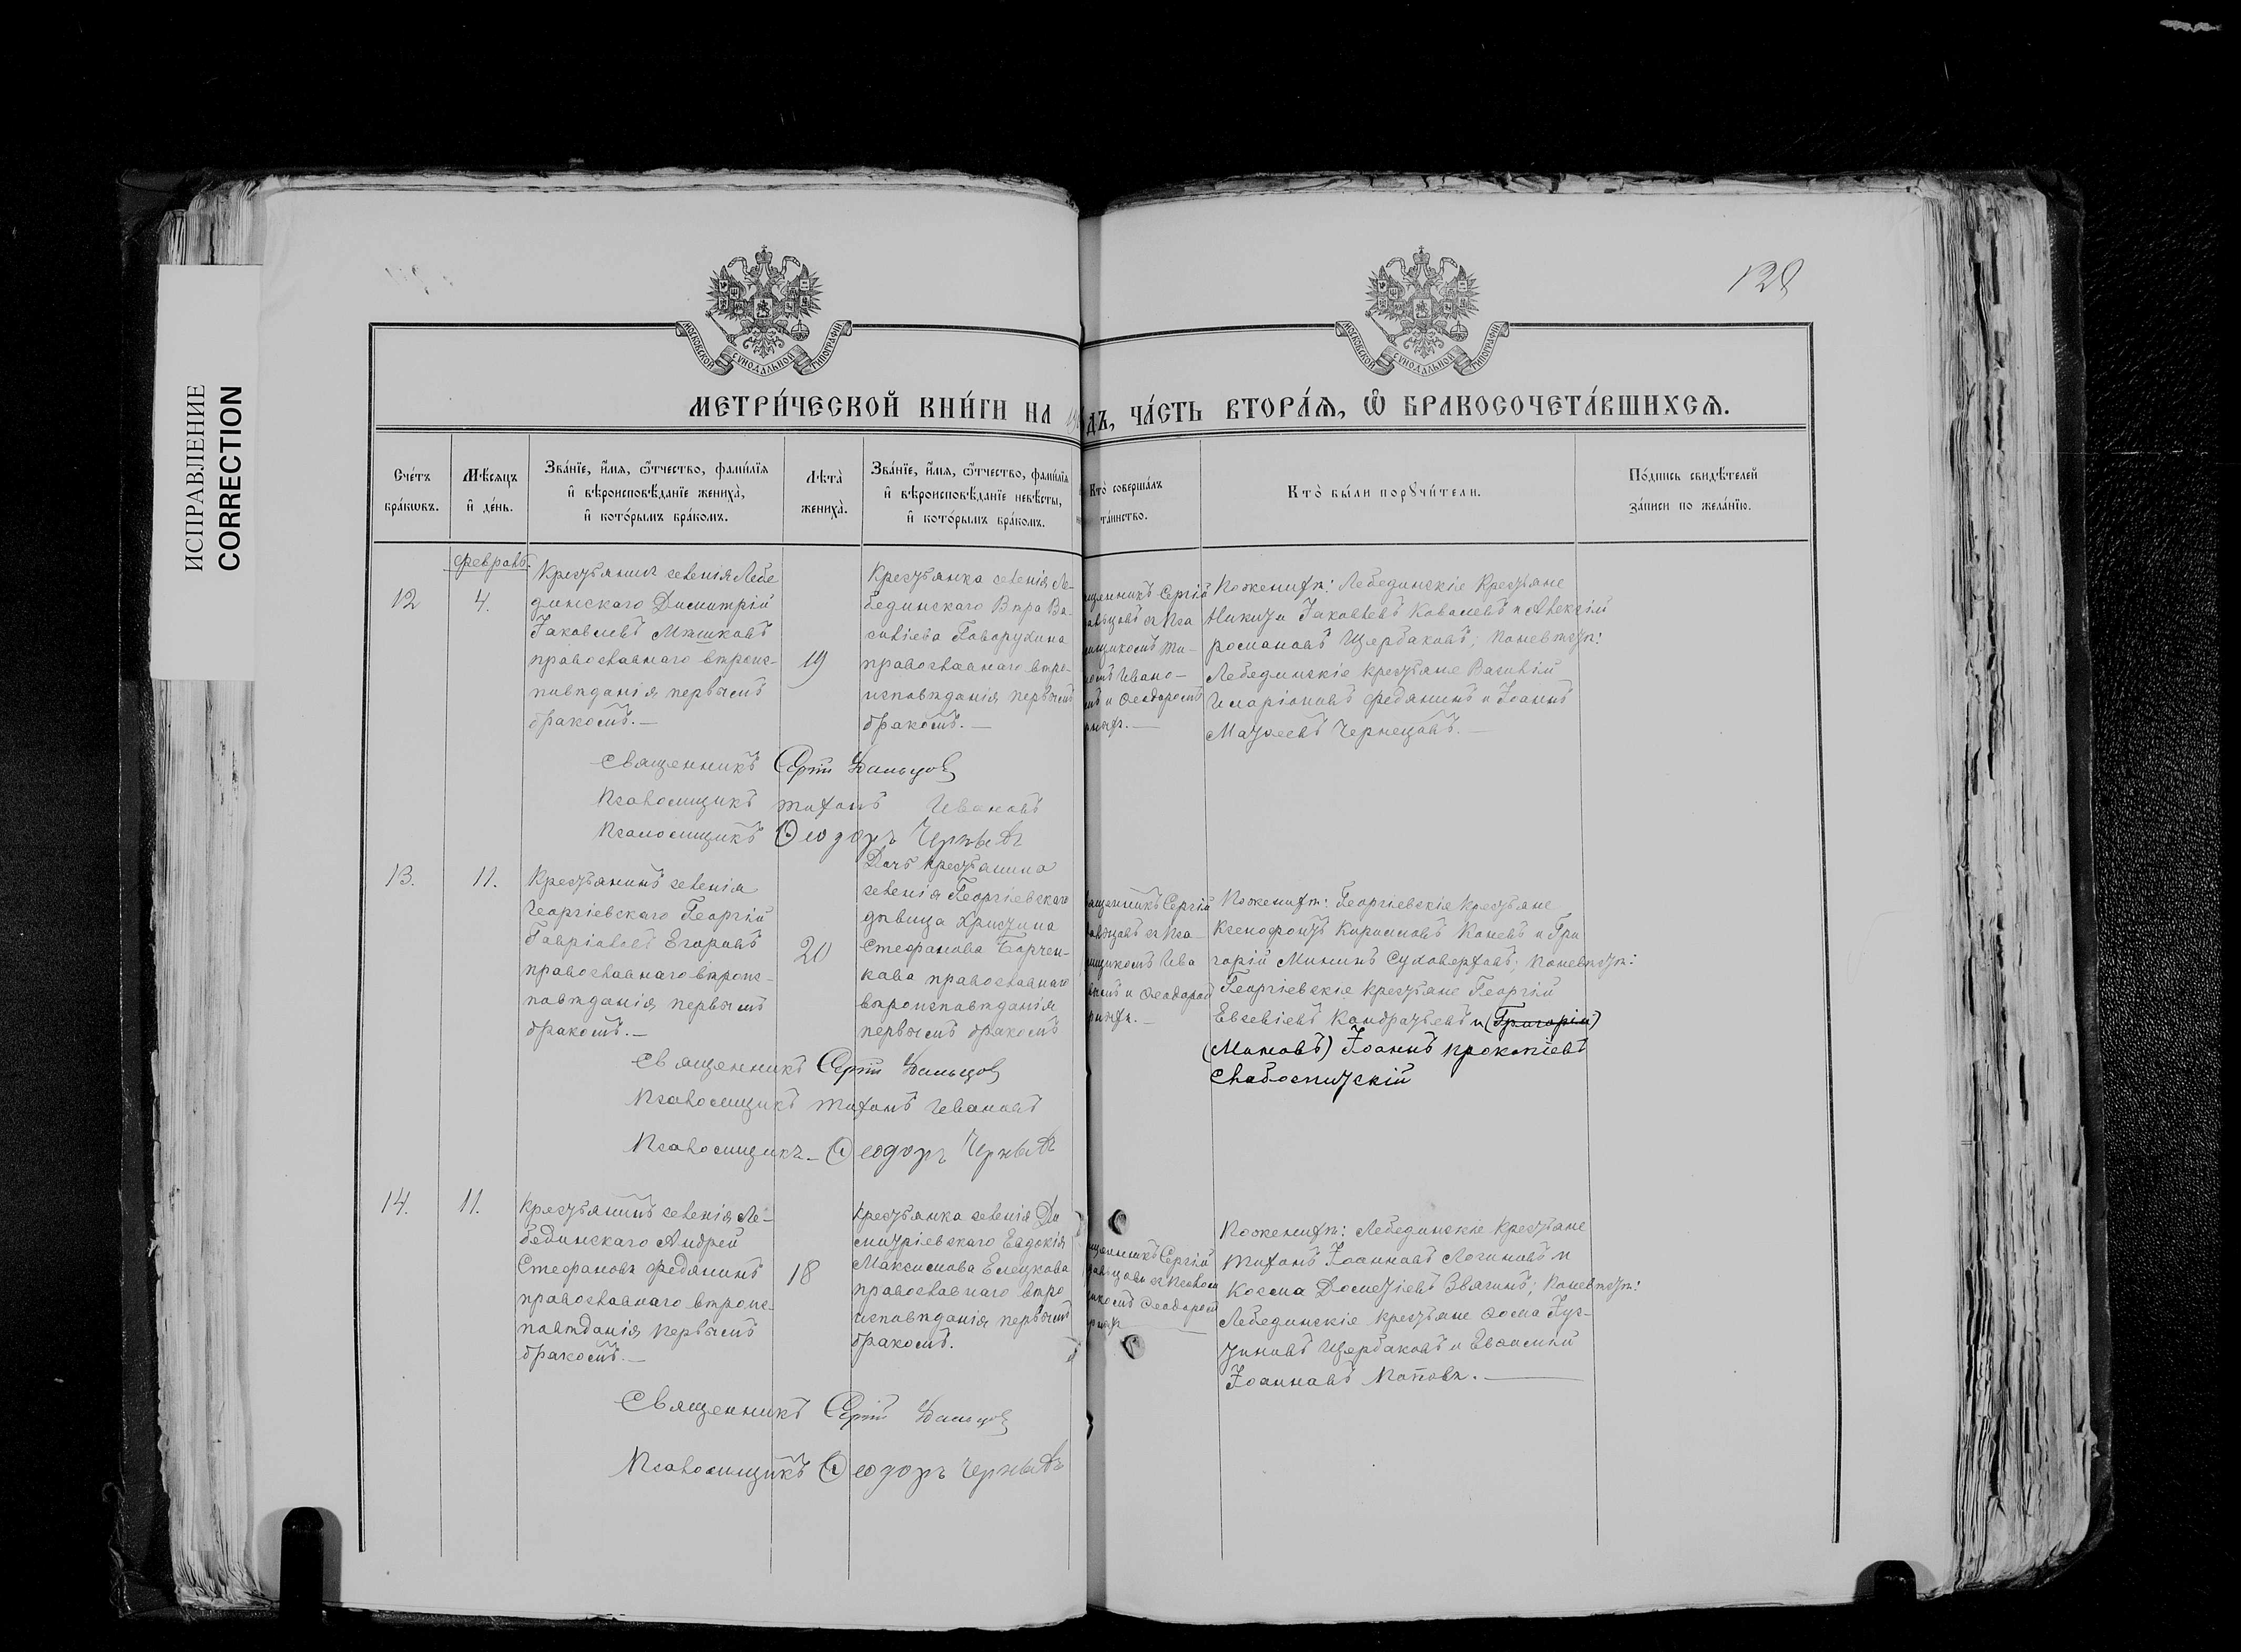 ИСПРАВЛЕНИЕ
CORRECTION
128
МОСКОВСКОЙ СУНОДАЛЬНОЙ ТИПОГРАФІИ
МОСКОВСКОЙ СУНОДАЛЬНОЙ ТИПОГРАФІИ
МЕТРИ́ЧЕСКОЙ КНИ́ГИ НА
ДЪ, ЧА́СТЬ ВТОРА́Ѧ, Ѡ҆ БРАКОСОЧЕТА́ВШИХСѦ.
Сче́тъ бра́кѡвъ.
Мѣ́сяцъ и҆ де́нь.
Зва́нїе, и҆́мѧ, ѻ҆́тчество, фами́лїѧ
и҆ вѣроисповѣ́данїе жениха̀,
и҆ кото́рымъ бра́комъ.
Лѣта̀ жениха̀.
Зва́нїе, и҆́мѧ, ѻ҆́тчество, фами́лїѧ
и҆ вѣроисповѣ́данїе невѣ́сты,
и҆ кото́рымъ бра́комъ.
Кто̀ соверша́лъ
та́инство.
Кто̀ бы́ли порꙋчи́тели.
По́дпись свидѣ́телей
за́писи по жела́нїю.
февраль
12
4.
Крестьянинъ селенія Лебе
динскаго Димитрій
Іаковлевъ Мѣшковъ
православнаго вѣроис-
повѣданія первымъ
бракомъ.—
19
Крестьянка селенія Ле-
бединскаго Вѣра Ва-
силіева Говорухина
православнаго вѣро-
исповѣданія первымъ
бракомъ.—
щенникъ Сергій
альцовъ съ Пса
мщикомъ Ти-
номъ Ивано-
и Ѳеодоромъ
Поженихѣ: Лебединскіе крестьяне
Никита Іаковлевъ Ковалевъ и Алексій
романовъ Щербаковъ; поневѣстѣ:
Лебединскіе крестьяне Василій
Иларіоновъ Федянинъ и Іоаннъ
Матѳеевъ Чернецовъ.—
Священникъ Сергій Дальцовъ
Псаломщикъ Тихонъ Ивановъ
Псаломщикъ Ѳеодоръ
13.
11.
Крестьянинъ селенія
Георгіевскаго Георгій
Гавріиловъ Егоровъ
православнаго вѣроис-
повѣданія первымъ
бракомъ.—
20
Дочь крестьянина
селенія Георгіевскаго
дѣвица Христина
Стефанова Борчен-
кова православнаго
вѣроисповѣданія
первымъ бракомъ
ященникъ Сергій
альцовъ съ Пса-
мщикомъ Ива
и Ѳеодоромъ
Поженихѣ: Георгіевскіе крестьяне
Ксенофонтъ Кириловъ Коневъ и Гри
горій Мининъ Суховерховъ; поневѣстѣ:
Георгіевскіе крестьяне Георгій
Евсевіевъ Кондратьевъ и (Григорій)
Іоаннъ Прокопіевъ
Священникъ Сергій Дальцовъ
Псаломщикъ Тихонъ Ивановъ
Псаломщикъ— Ѳеодоръ
14.
11.
Крестьянинъ селенія Ле-
бединскаго Андрей
Стефановъ Федянинъ
православнаго вѣроис-
повѣданія первымъ
бракомъ.—
18
Крестьянка селенія Ди
митріевскаго Евдокія
Максимова Елецкова
православнаго вѣро
исповѣданія первымъ
бракомъ.
щенникъ Сергій
альцовъ съ Псалом
щикомъ Ѳеодоромъ
Поженихѣ: Лебединскіе крестьяне
Тихонъ Іоанновъ Логиновъ и
Косма Дометіевъ Звягинъ; поневѣстѣ:
Лебединскіе крестьяне Ѳома Іус-
тиновъ Щербаковъ и Евѳимій
Іоанновъ Поповъ.—
Священникъ Сергій Дальцовъ
Псаломщикъ Ѳеодоръ